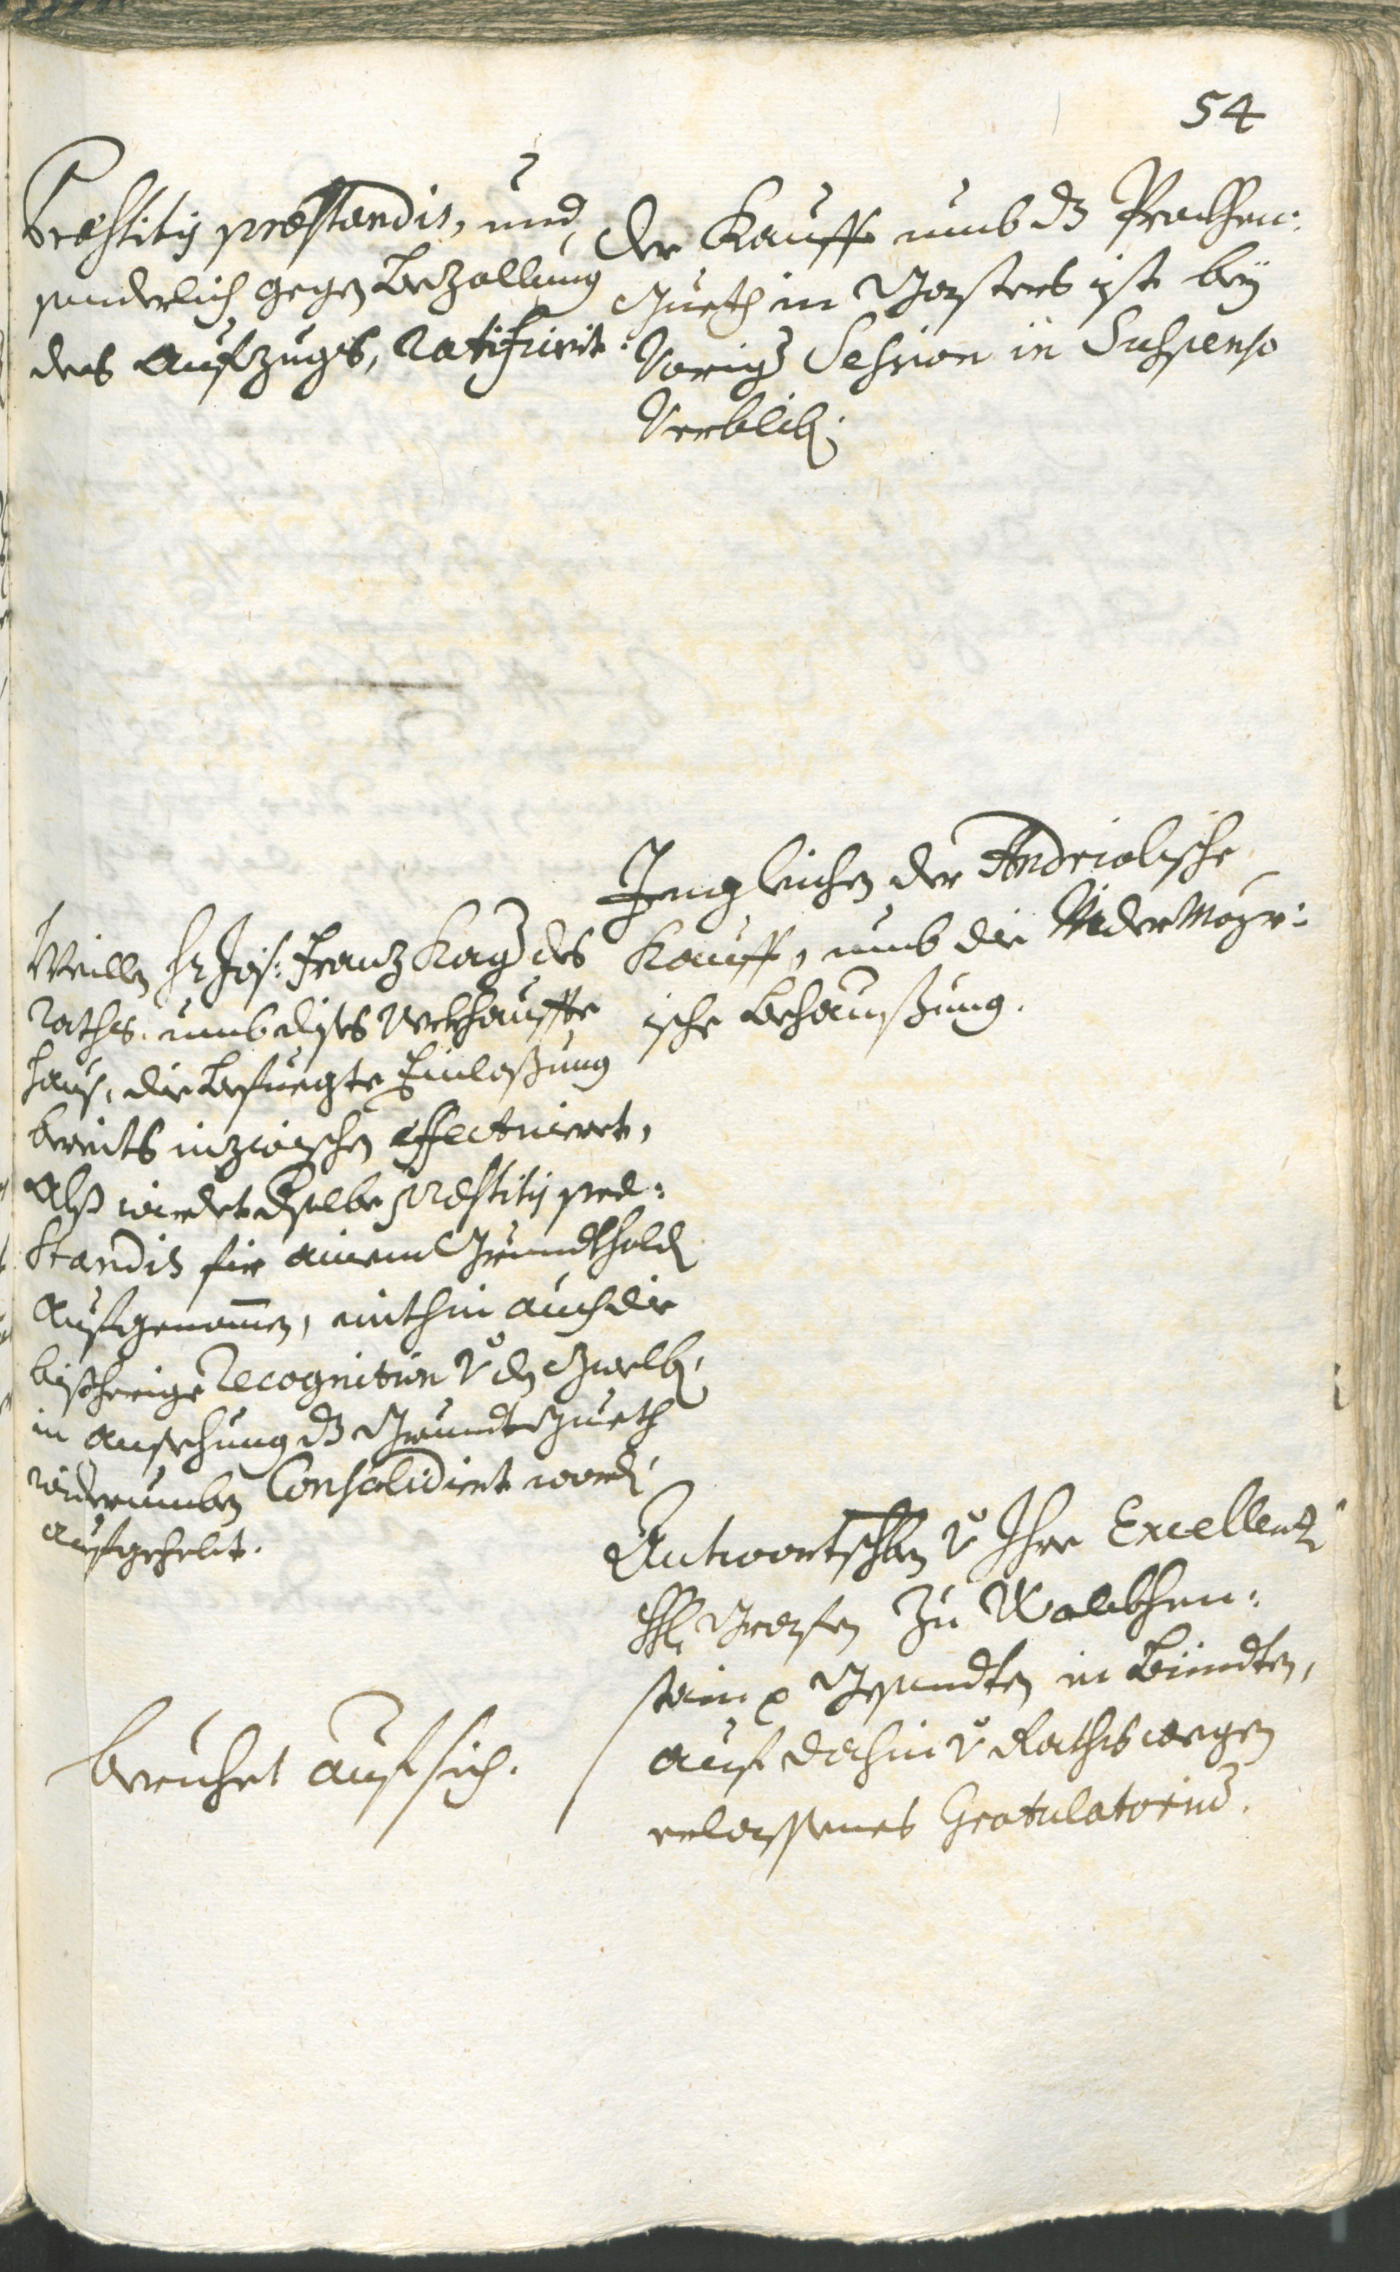 54
Præstitis præstandis, und
sonderlich gegen Bezallung
des Aufzugs, Ratificirt.
Der Kauff umb dz Prackhen:
Gueth in Gorsters ist bey
Voriger Session in Suspenso
Verblib.
Jengleichen der Andriolische
Kauff, umb die NiderMayr:
ische Behaussung.
Weillen Hr Jos: Franz Kager des
Raths. umb dises Verkhauffte
Haus, die befuegte Einlossung
bereits inzwischen effectuiert,
Als wirdet dselbe præstitis præ:
standis für ainem Grundthold
aufgenomen, mithin auch die
bishörige Recognition v. den Gwelb,
in ansehung dz Grundt Gueth
widerumben Consolidirt word,
aufgehebt.
Antwortschben v. Ihre Excellenz
H. Grafen zu Wolckhen:
stain p Gesandten in Bündten,
auf dahin v. Raths wegen
erlassenes Gratulatorium.
Beruhet auf sich.